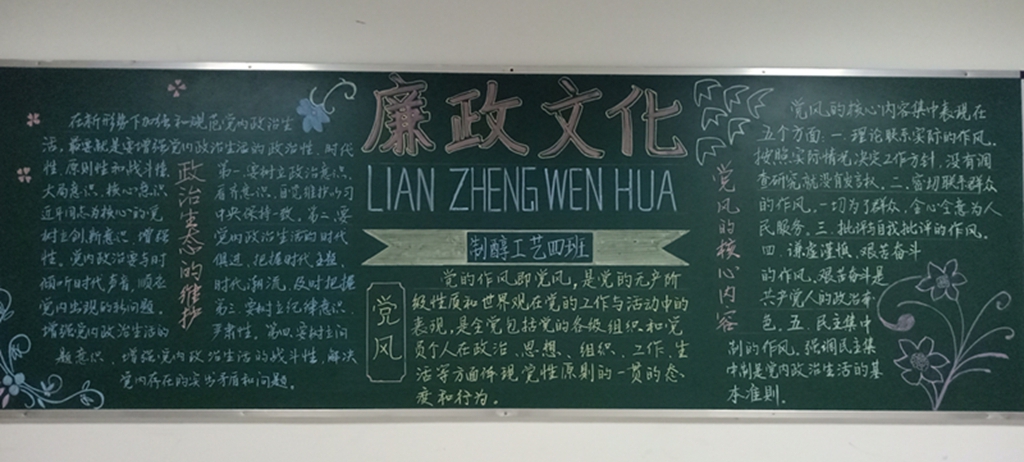 廉政文化
LIAN ZHENG WEN HUA
制醇工艺四班
在新形势下加强和规范党内政治生
活，最要就是要增强党内政治生活的政治性、时代
性、原则性和战斗性
大局意识、核心意识
近平同志为核心的党
树立创新意识，增强
性。党内政治要与时
倾听时代声音，顺应
党内出现的新问题。
增强党内政治生活的
题意识，增强党内政治生活的战斗性，解决
党内存在的突出矛盾和问题。
政治生态的维护
第一、要树立政治意识、
看齐意识，自觉维护与习
中央保持一致。第二、要
党内政治生活的时代
俱进，把握时代主题
时代潮流，及时把握
第三、要树立纪律意识，
严肃性。第四、要树立问
党风
党的作风即党风，是党的无产阶
级性质和世界观在党的工作与活动中的
表现，是全党包括党的各级组织和党
员个人在政治、思想、组织、工作、生
活等方面体现党性原则的一贯的态
度和行为。
党风的核心内容
党风的核心内容集中表现在
五个方面：一、理论联系实际的作风。
按照实际情况决定工作方针，没有调
查研究就没有发言权。二、密切联系群众
的作风，一切为了群众，全心全意为人
民服务。三、批评与自我批评的作风。
四、谦虚谨慎、艰苦奋斗
的作风。艰苦奋斗是
共产党人的政治本
色。五、民主集中
制的作风。强调民主集
中制是党内政治生活的基
本准则。